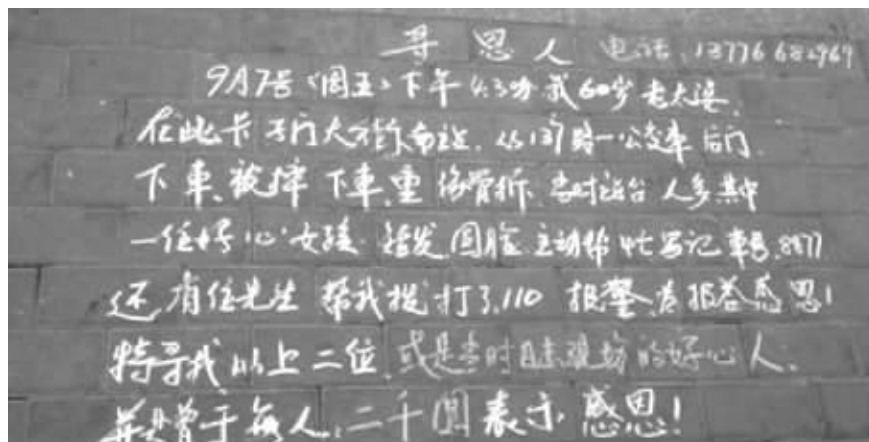 寻恩人 电话.13776682969
9月7号(周五)下午4:30分我60岁老太婆.
在此卡子门大街南站.从137路一公交車后门.
下車.被摔下車.重伤骨折.当时站台人多其中
一位好心女孩.短发.圆脸.主动帮忙写记車号.8977
还有位先生帮我拨打了.110报警.为报答感恩!
特寻找以上二位.或是当时目睹现场的好心人.
并赠于每人.二千圆表示.感恩!